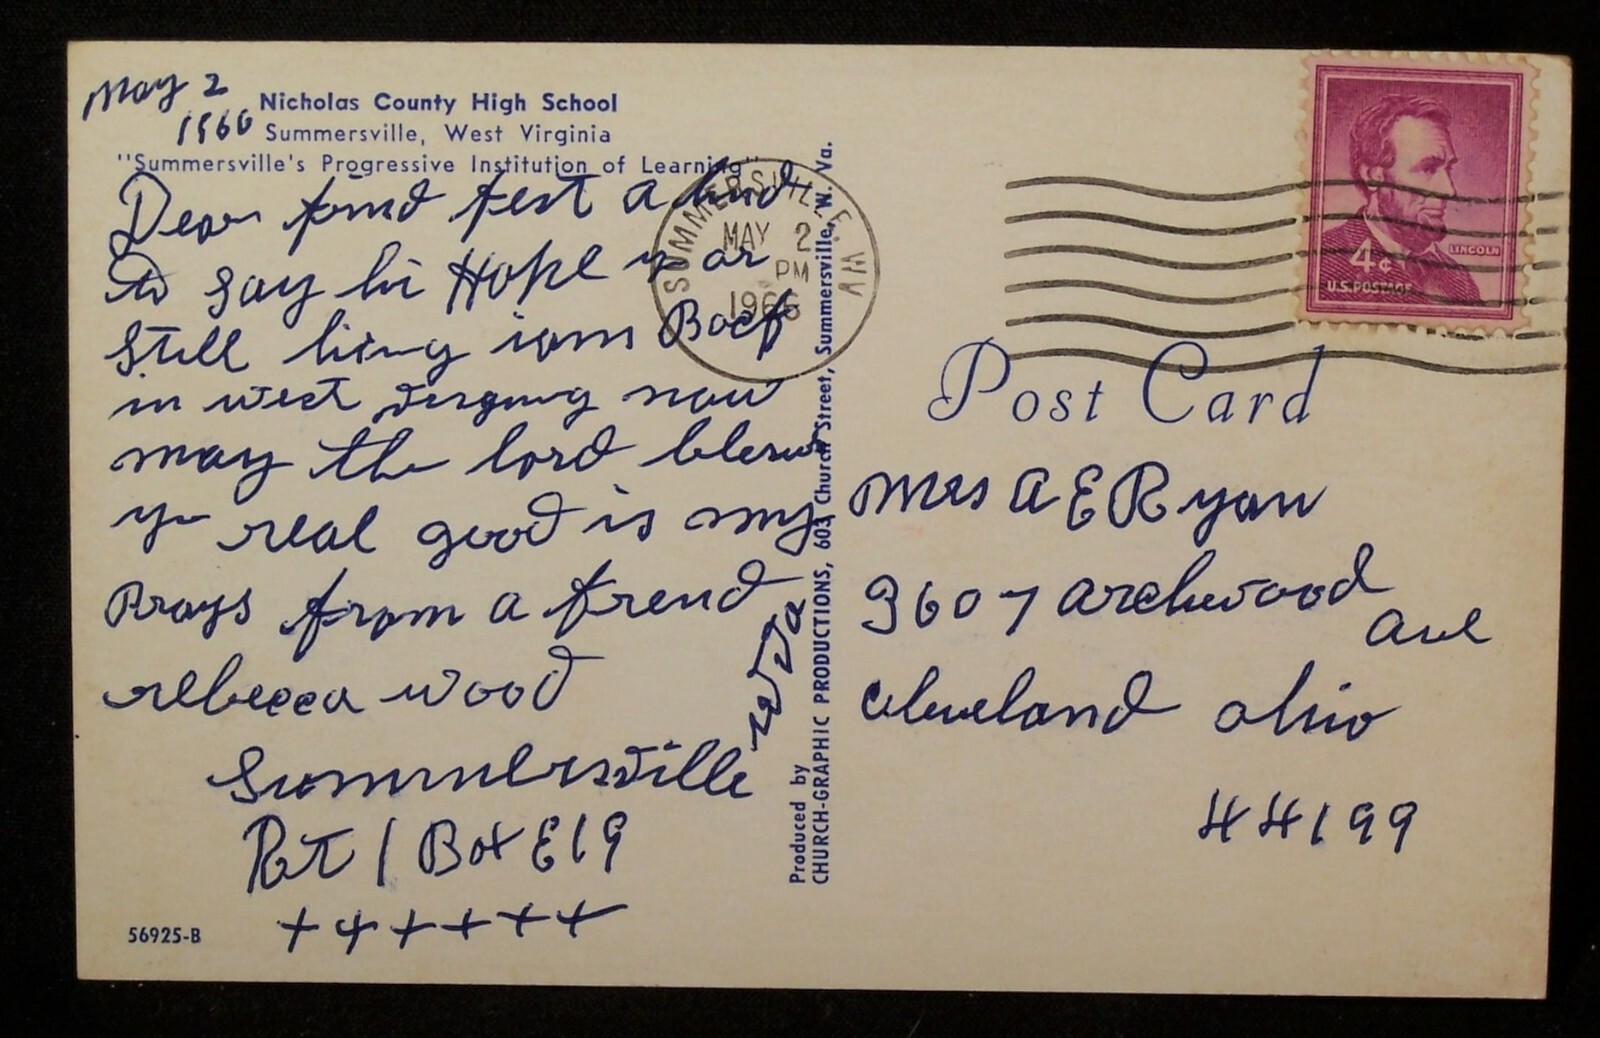 May 2
1966
Nicholas County High School
Summersville, West Virginia
"Summersville's Progressive Institution of Learning"
Dear frind Jest a lind
to say hi Hope you ar
still living iam Back
in west Virginy now
may the lord bless
you real good is my
Prays from a frend
rebecca wood
Summersville
W Va
Rt 1 Box E19
++++++
56925-B
Produced by
CHURCH-GRAPHIC PRODUCTIONS, 603 Church Street, Summersville, W. Va.
SUMMERSVILLE W V
MAY 2
PM
1966
4¢
LINCOLN
U.S. POSTAGE
Post Card
Mrs A E Ryan
3607 archwood
ave
Cleveland ohio
44199